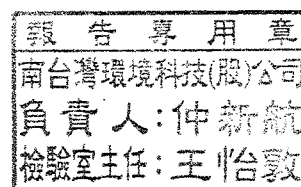 報告專用章
南台灣環境科技(股)公司
負責人:仲新航
檢驗室主任:王怡敦